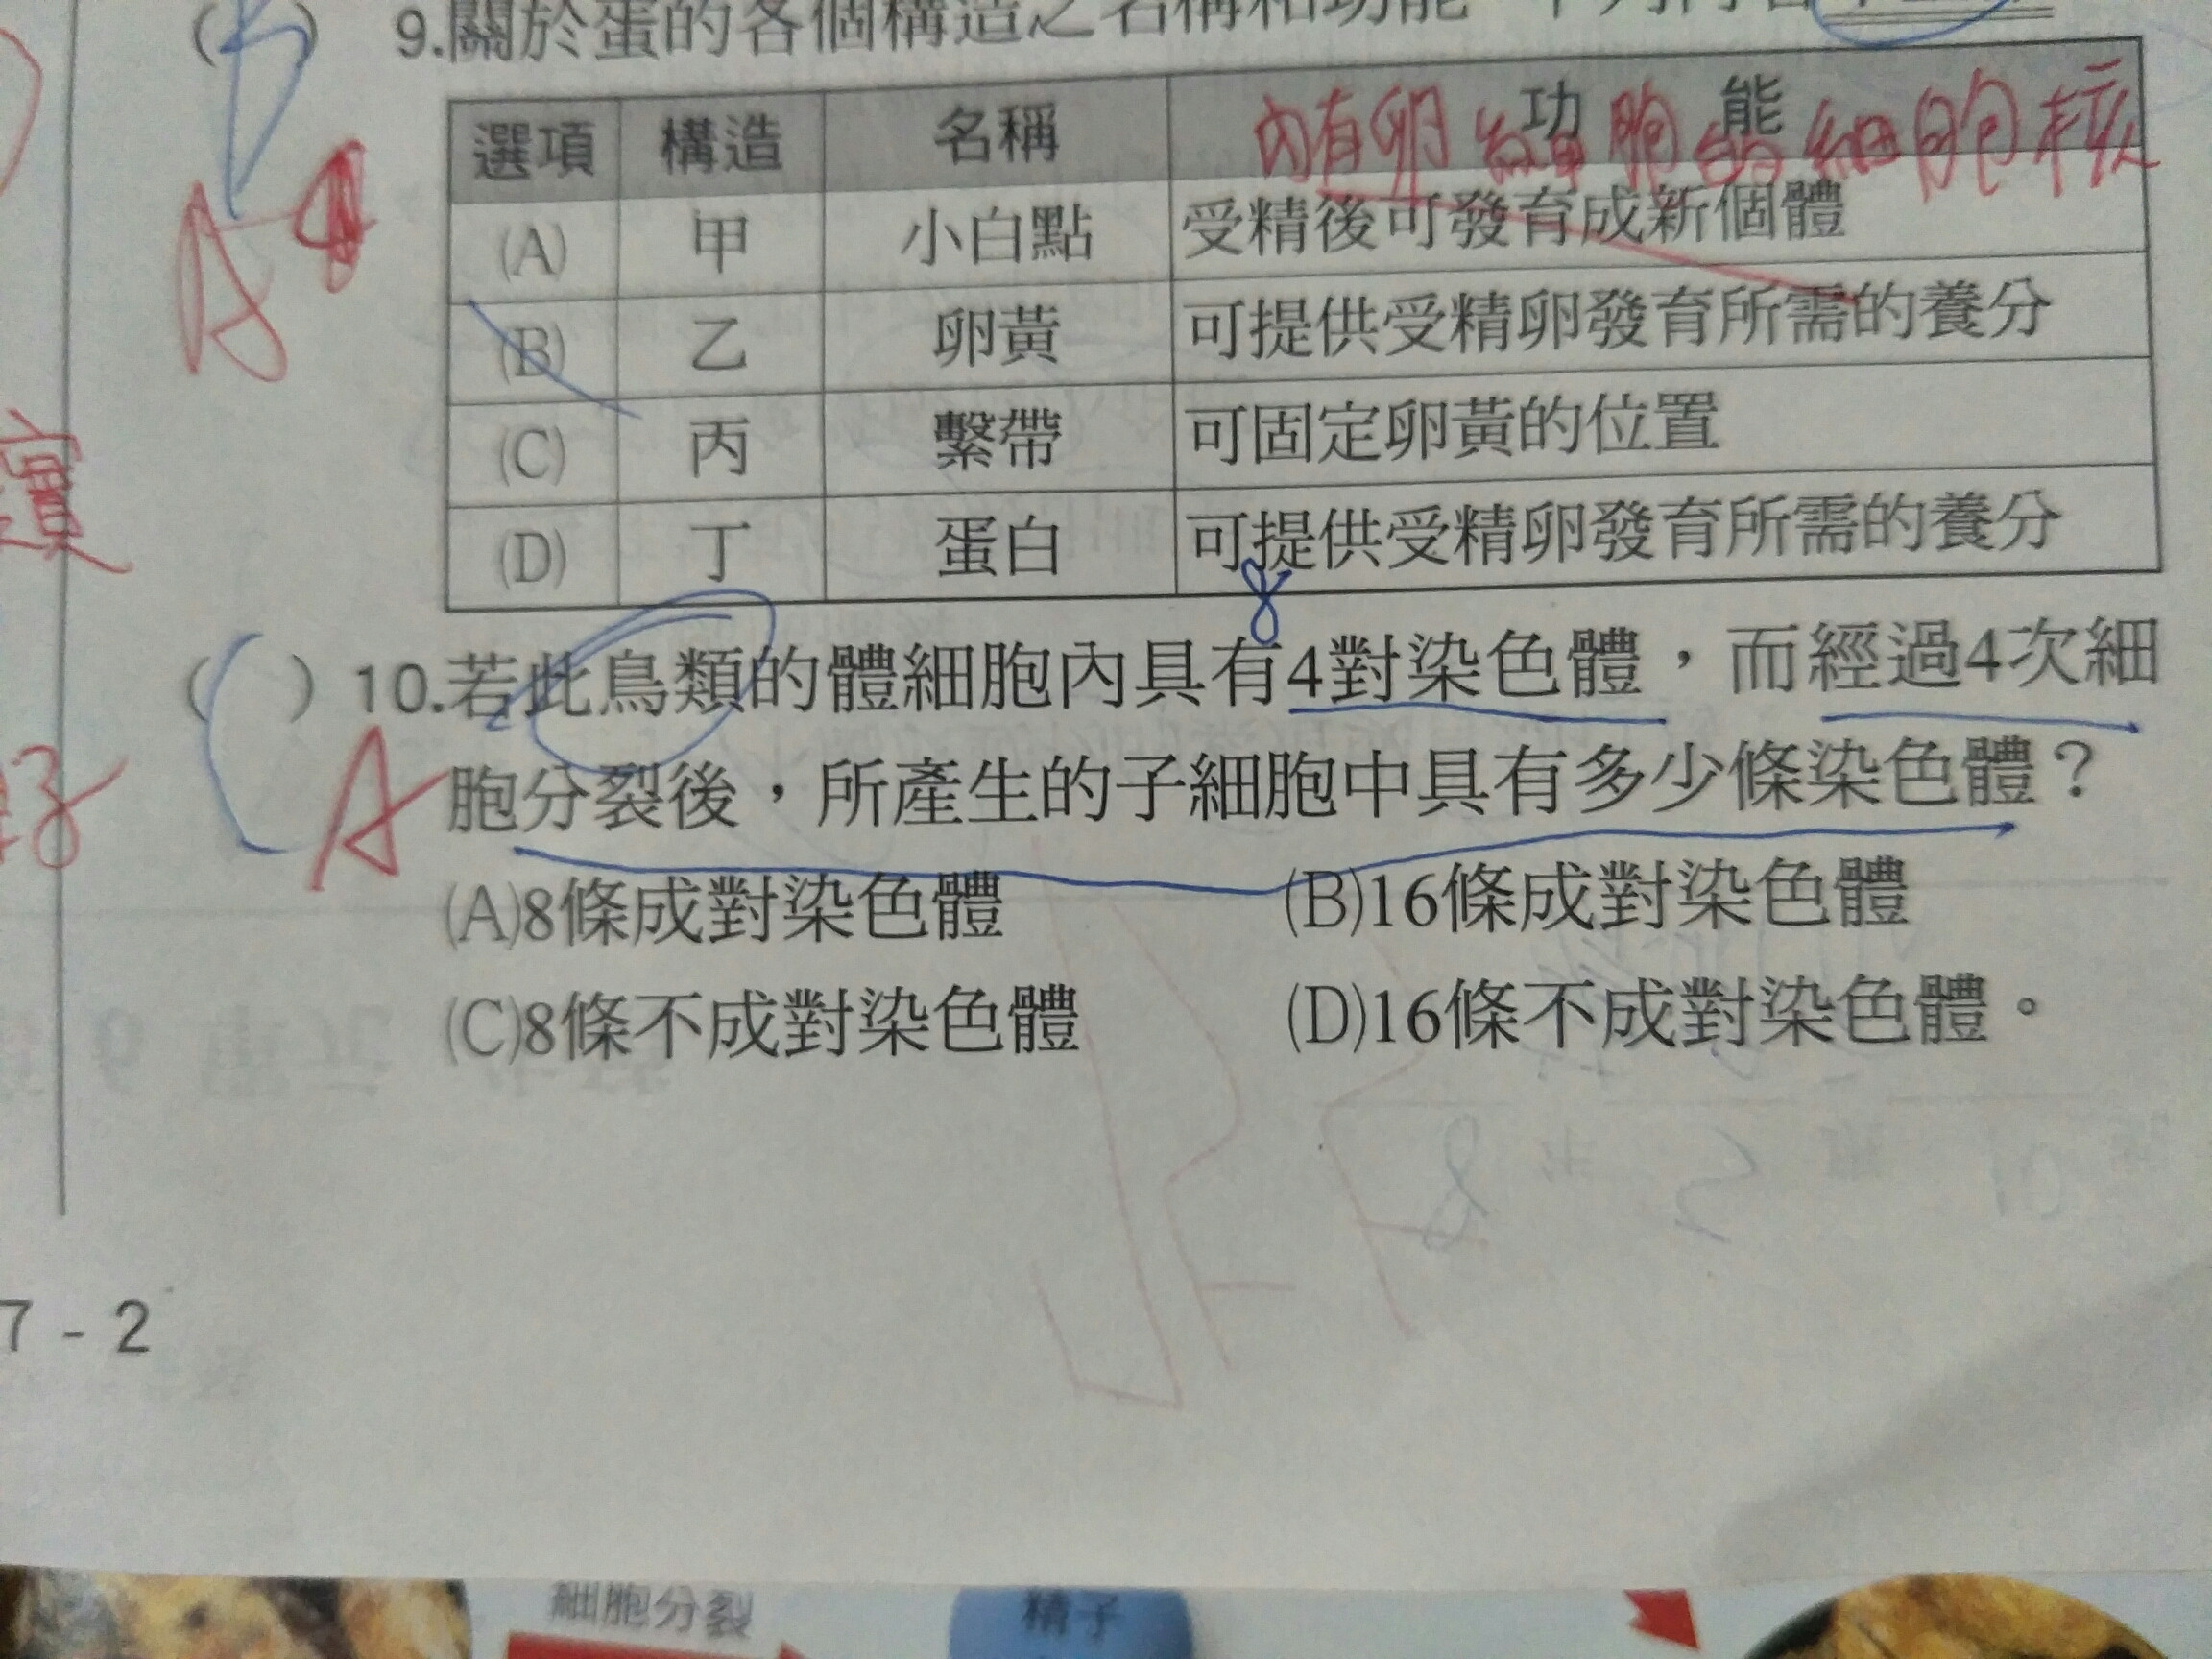 9.關於蛋的各個構造之名稱和功能
B
選項 構造 名稱 功能
內有卵細胞的細胞核
(A) 甲 小白點 受精後可發育成新個體
A
(B) 乙 卵黃 可提供受精卵發育所需的養分
(C) 丙 繫帶 可固定卵黃的位置
(D) 丁 蛋白 可提供受精卵發育所需的養分
8
( ) 10.若此鳥類的體細胞內具有4對染色體，而經過4次細
胞分裂後，所產生的子細胞中具有多少條染色體？
A
(A)8條成對染色體 (B)16條成對染色體
(C)8條不成對染色體 (D)16條不成對染色體。
7-2
細胞分裂 精子